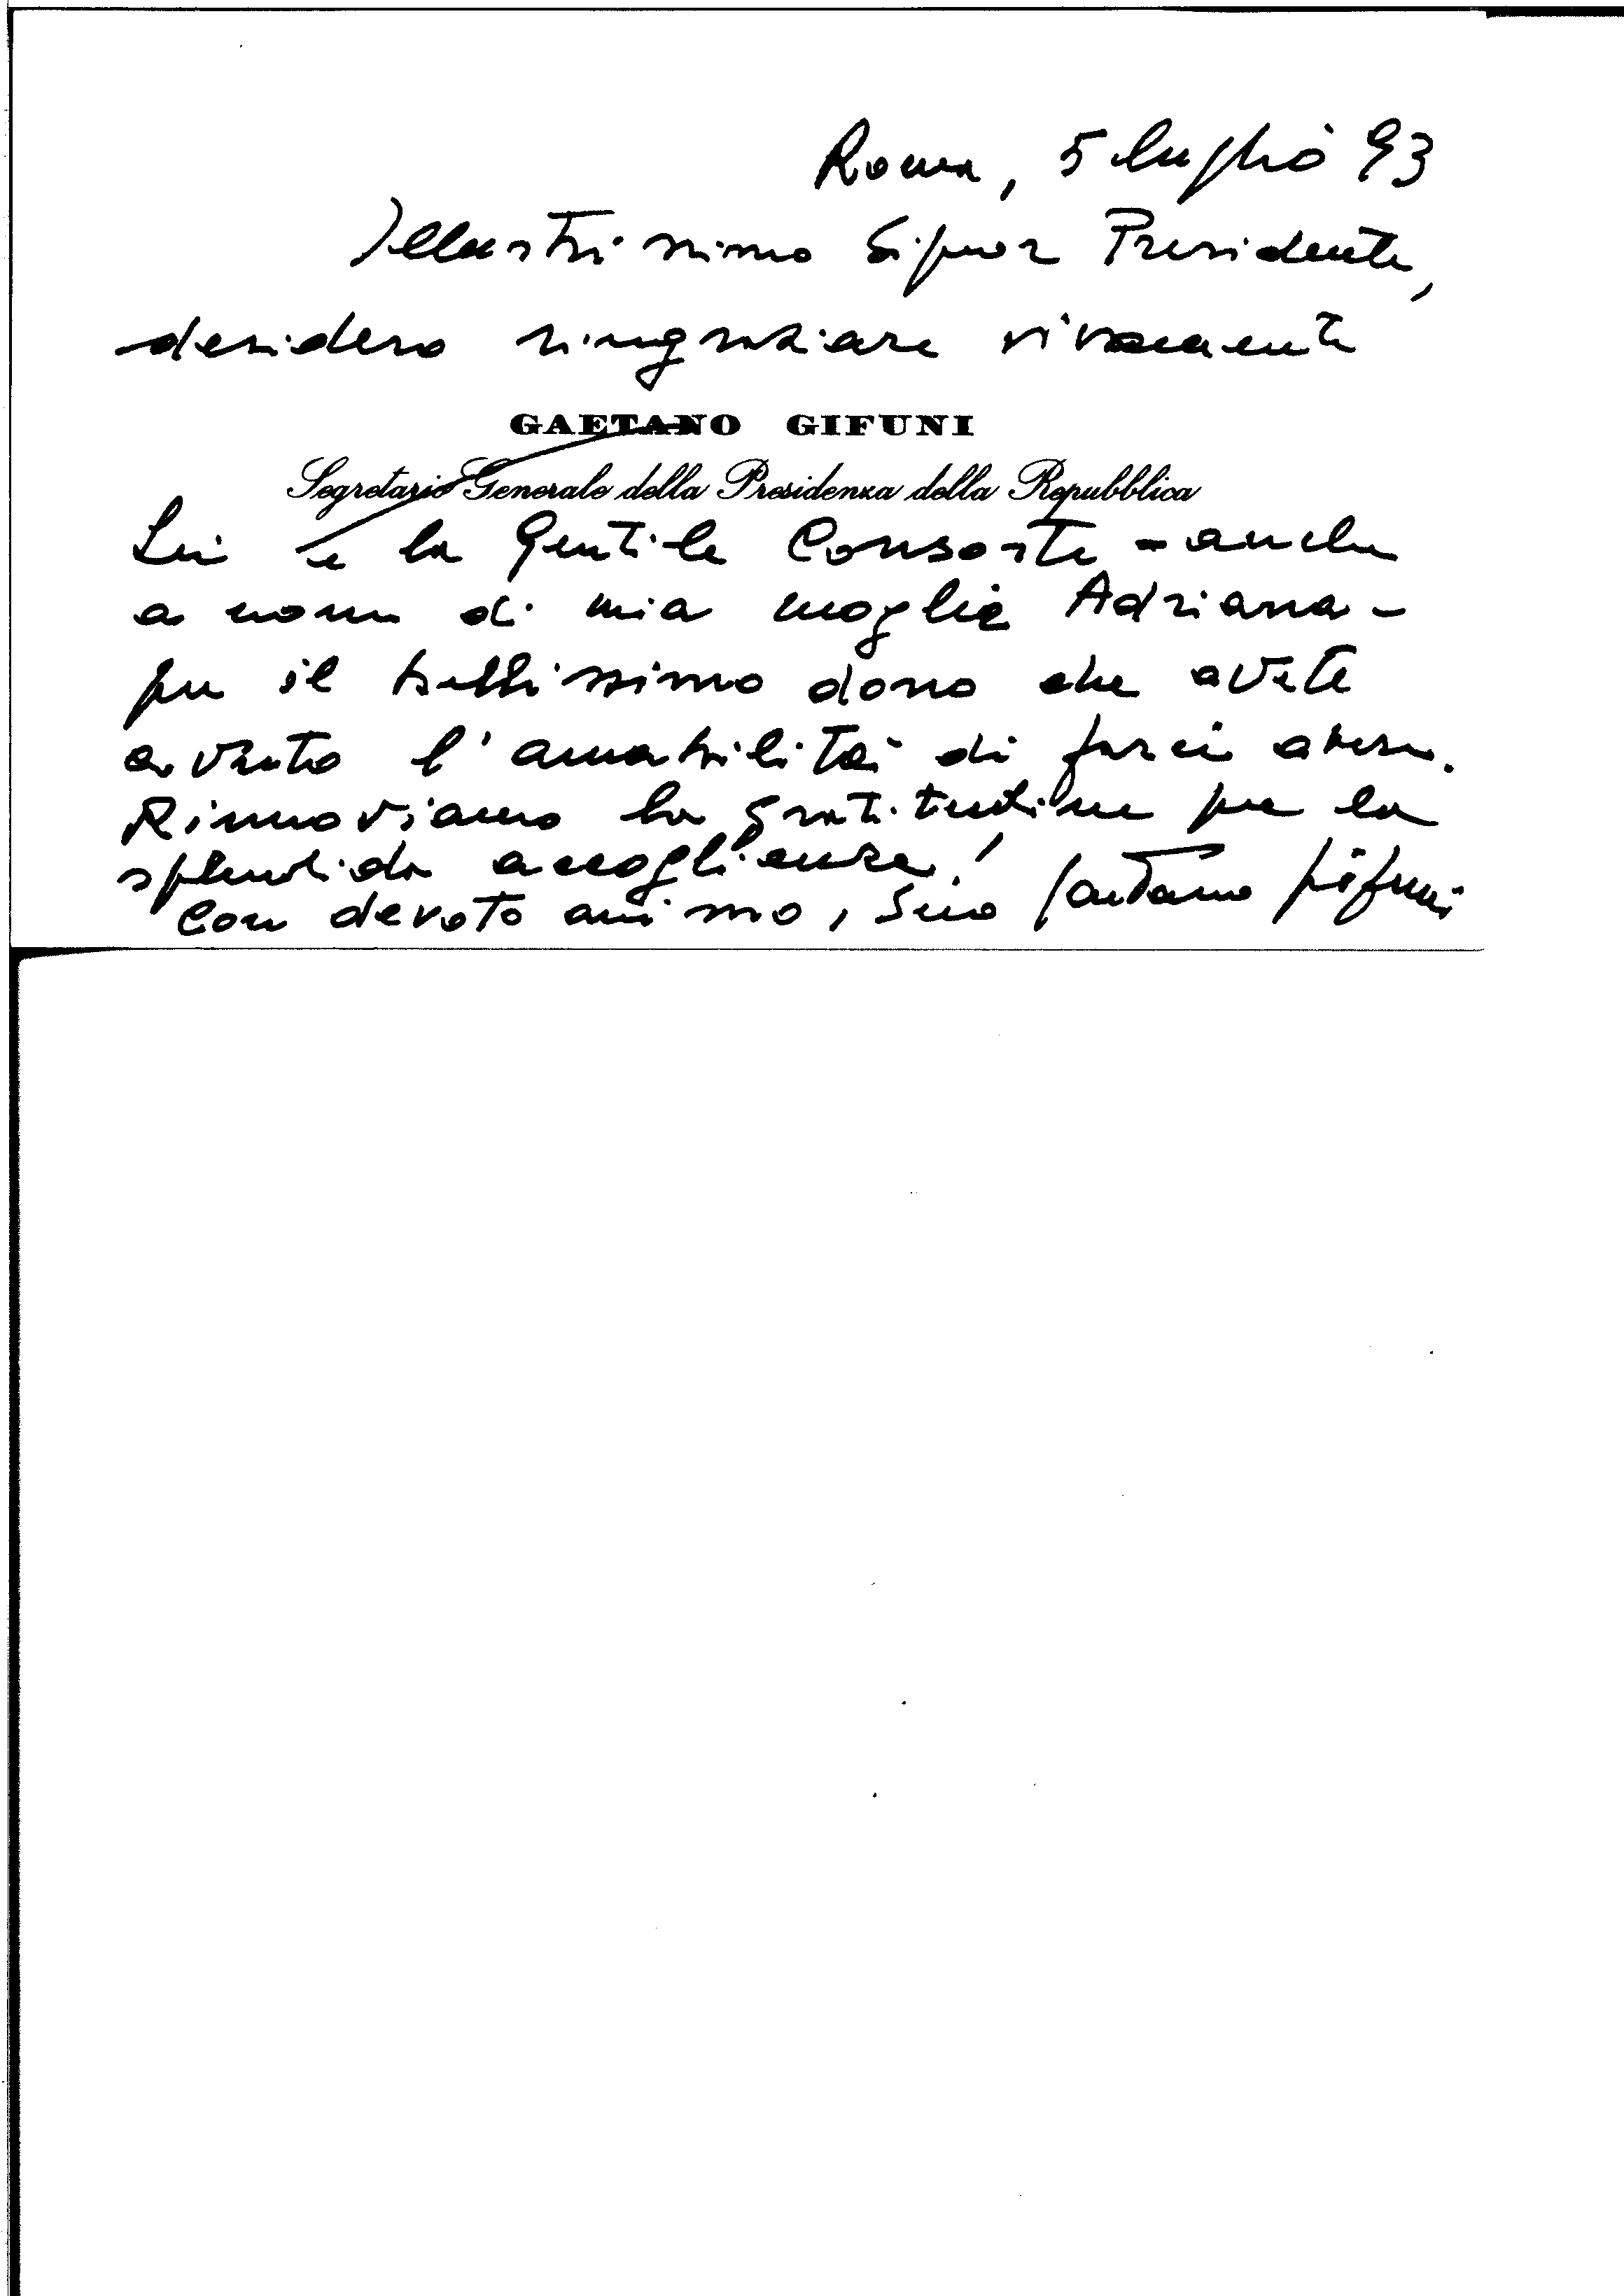 Roma, 5 luglio 93
Illustrissimo Signor Presidente,
desidero ringraziare vivamente
GAETANO GIFUNI
Segretario Generale della Presidenza della Repubblica
Lei e la Gentile Consorte - anche
a nome di mia moglie Adriana -
per il bellissimo dono che avete
avuto l'amabilità di farci avere.
Rinnoviamo la gratitudine per la
splendida accoglienza!
Con devoto animo, Suo Gaetano Gifuni